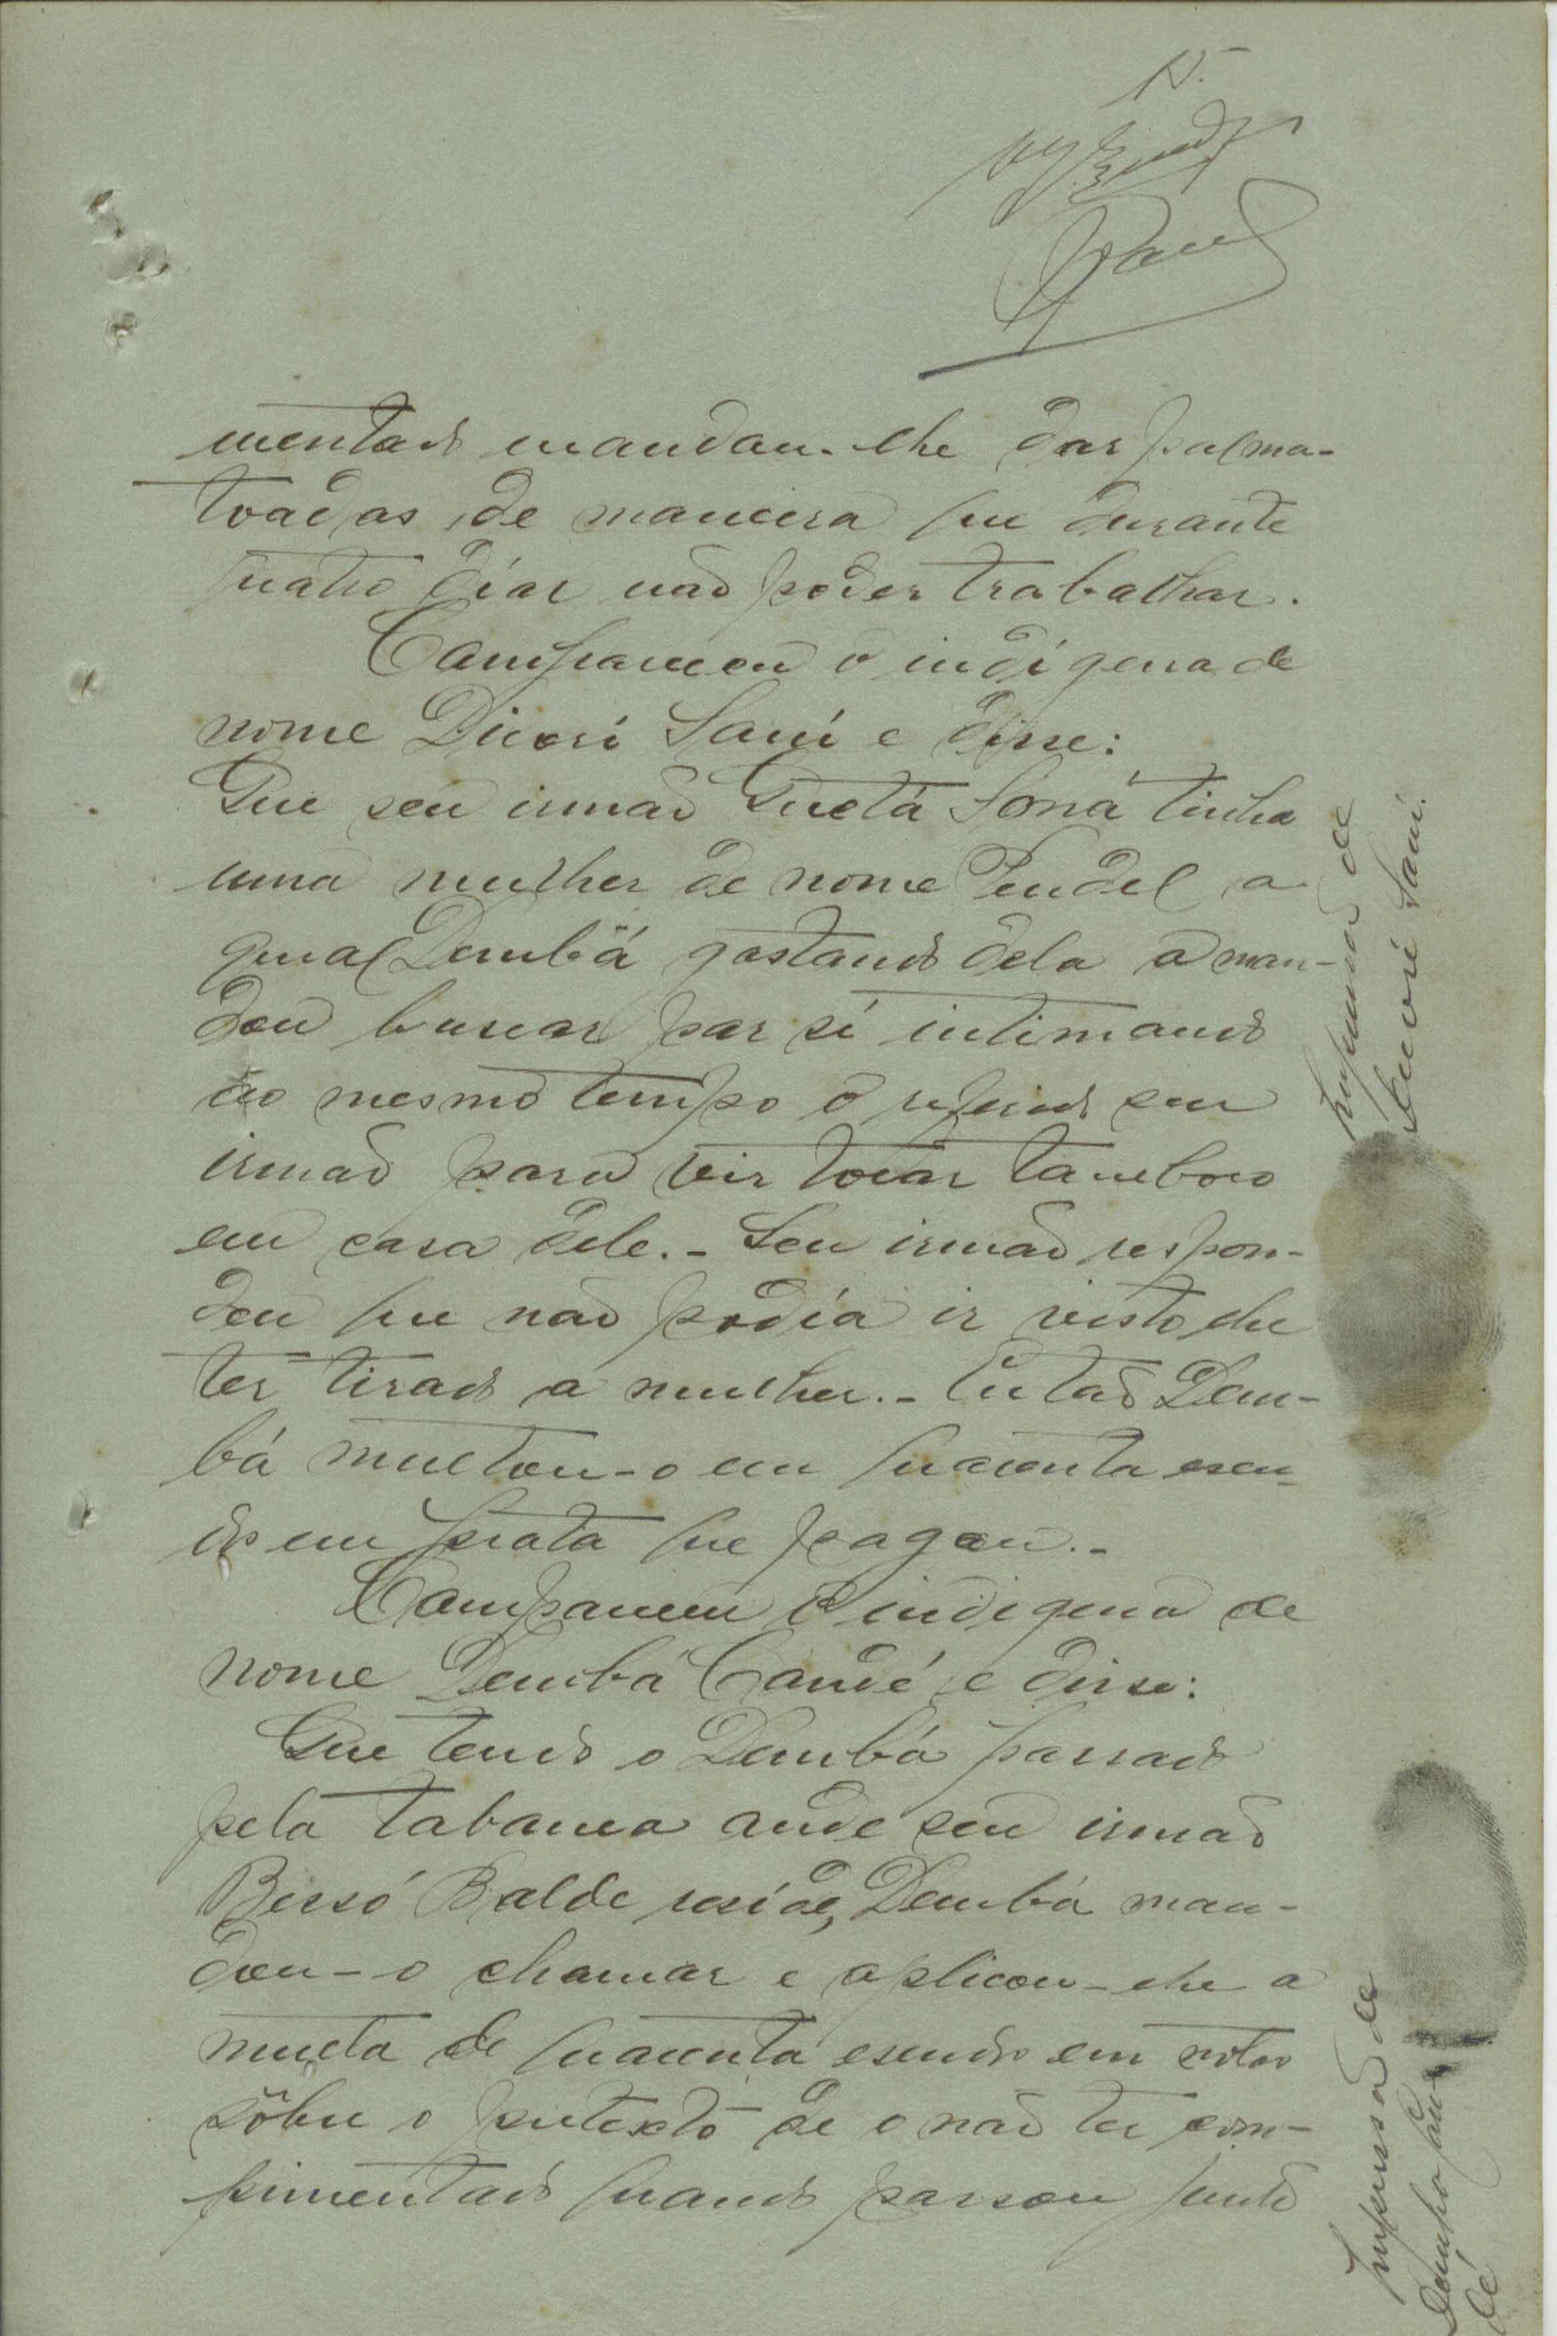 15.
mentado mandou-lhe dar palma-
toadas de maneira que durante
quatro dias não poder trabalhar.
Compareceu o indígena de
nome Dicori Sani e disse:
Que seu irmão Quetá Soná tinha
uma mulher de nome Pendel a
qual Dembá gostando dela a man-
dou buscar par si intimando
ao mesmo tempo o referido seu
irmão para vir tocar tamboro
em casa dele.- Seu irmão respon-
deu que não podia ir visto lhe
ter tirado a mulher.- Então Dem-
bá multou-o em quarenta escu-
dos em prata que pagou.-
Compareceu o indigena de
nome Dembá Candé e disse:
Que tendo o Dembá passado
pela tabanca onde seu irmão
Bersó Balde reside, Dembá man-
dou-o chamar e aplicou-lhe a
multa de quarenta escudos em notas
sôbre o pretexto de o não ter com-
primentado quando passou junto
Impressão de
Dicori Sani.
Impressão de
Dempo Can-
dé